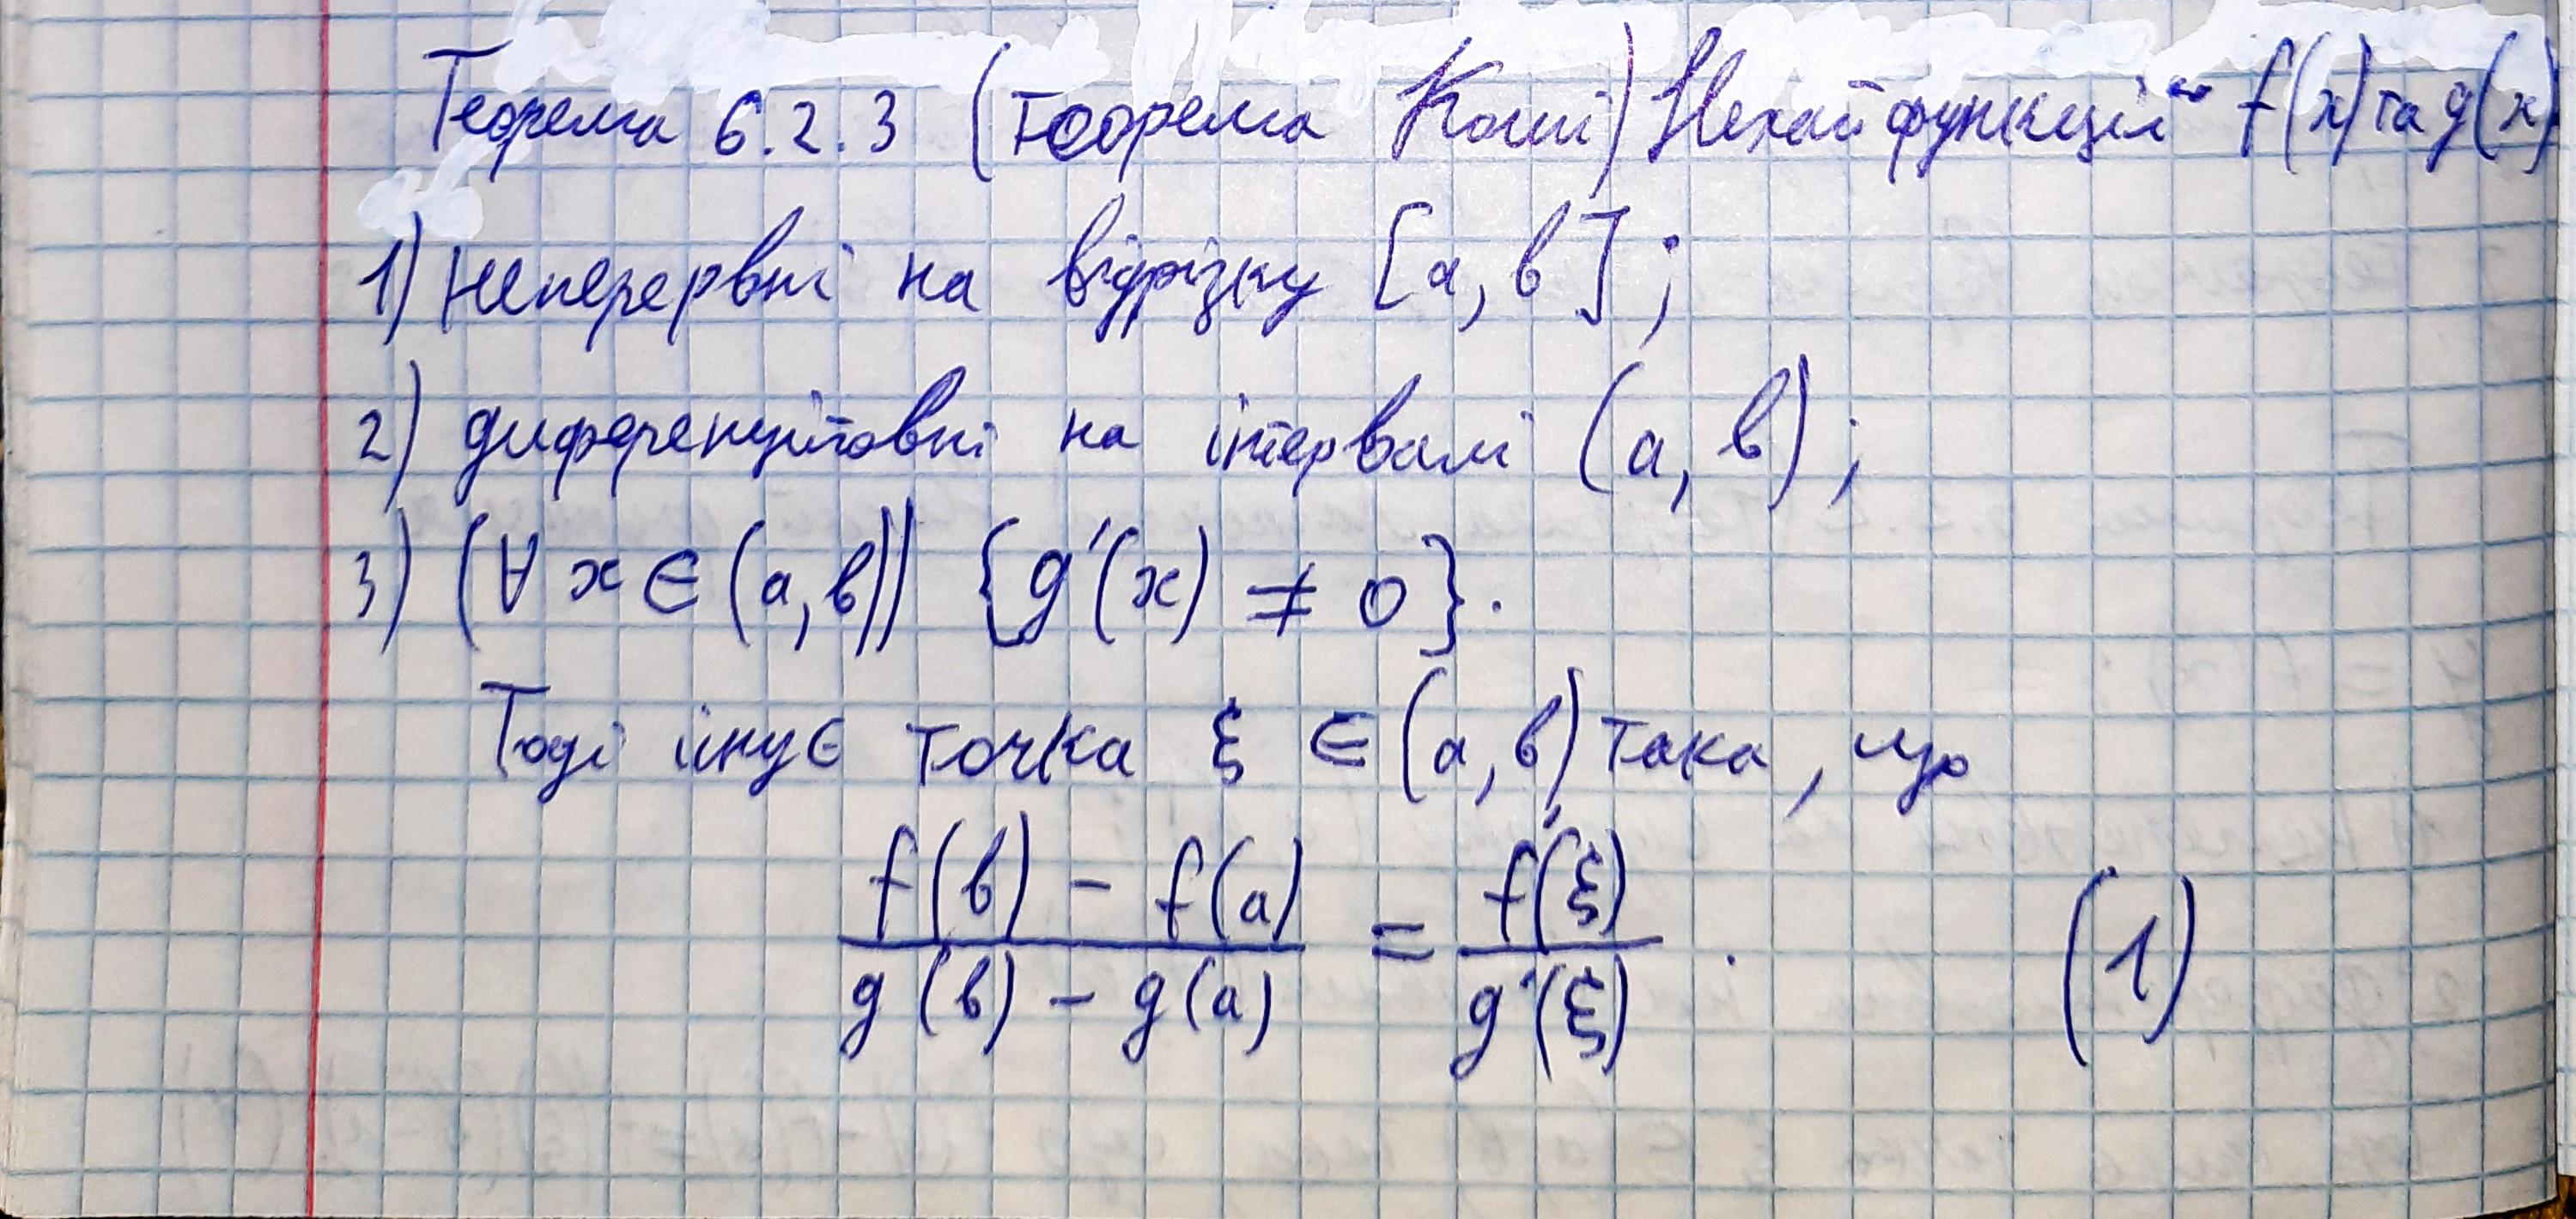 Теорема 6.2.3 (теорема Коші) Нехай функції f(x) та g(x)
1) неперервні на відрізку [a, b];
2) диференційовні на інтервалі (a, b);
3) (∀ x ∈ (a, b)) {g'(x) ≠ 0}.
Тоді існує точка ξ ∈ (a, b) така, що
(f(b) - f(a)) / (g(b) - g(a)) = f'(ξ) / g'(ξ) . (1)